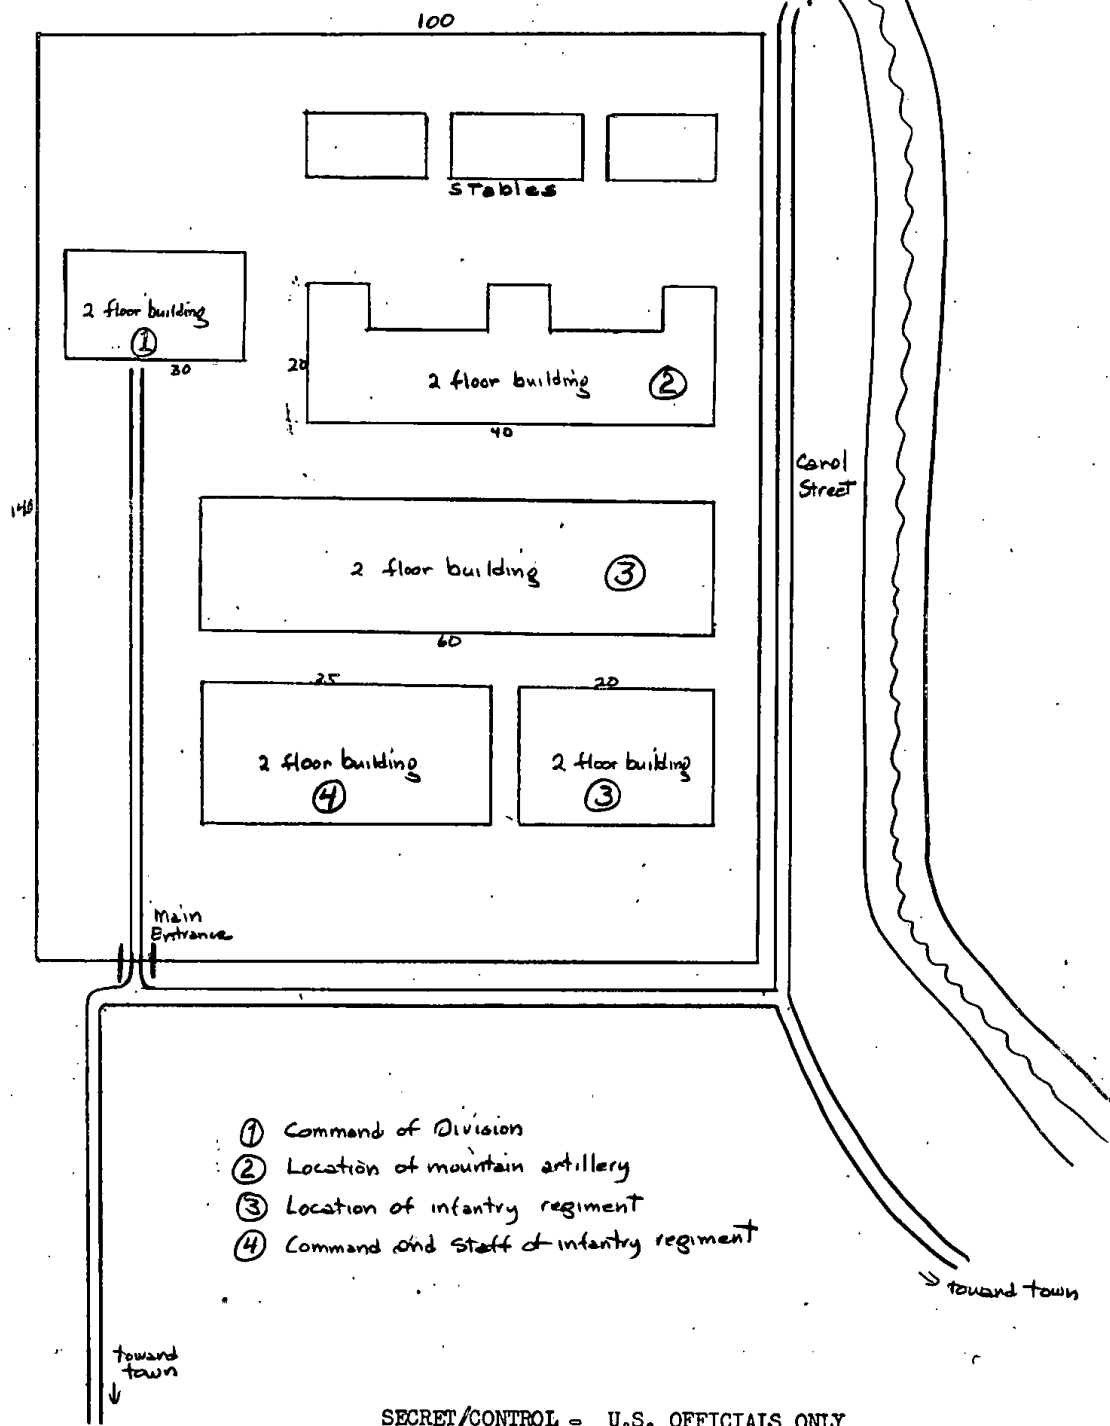 100
Stables
2 floor building
1
30
20
2 floor building 2
40
Carol
Street
140
2 floor building 3
60
25
20
2 floor building
4
2 floor building
3
Main
Entrance
1 Command of Division
2 Location of mountain artillery
3 Location of infantry regiment
4 Command and Staff of infantry regiment
toward town
toward
town
SECRET/CONTROL - U.S. OFFICIALS ONLY